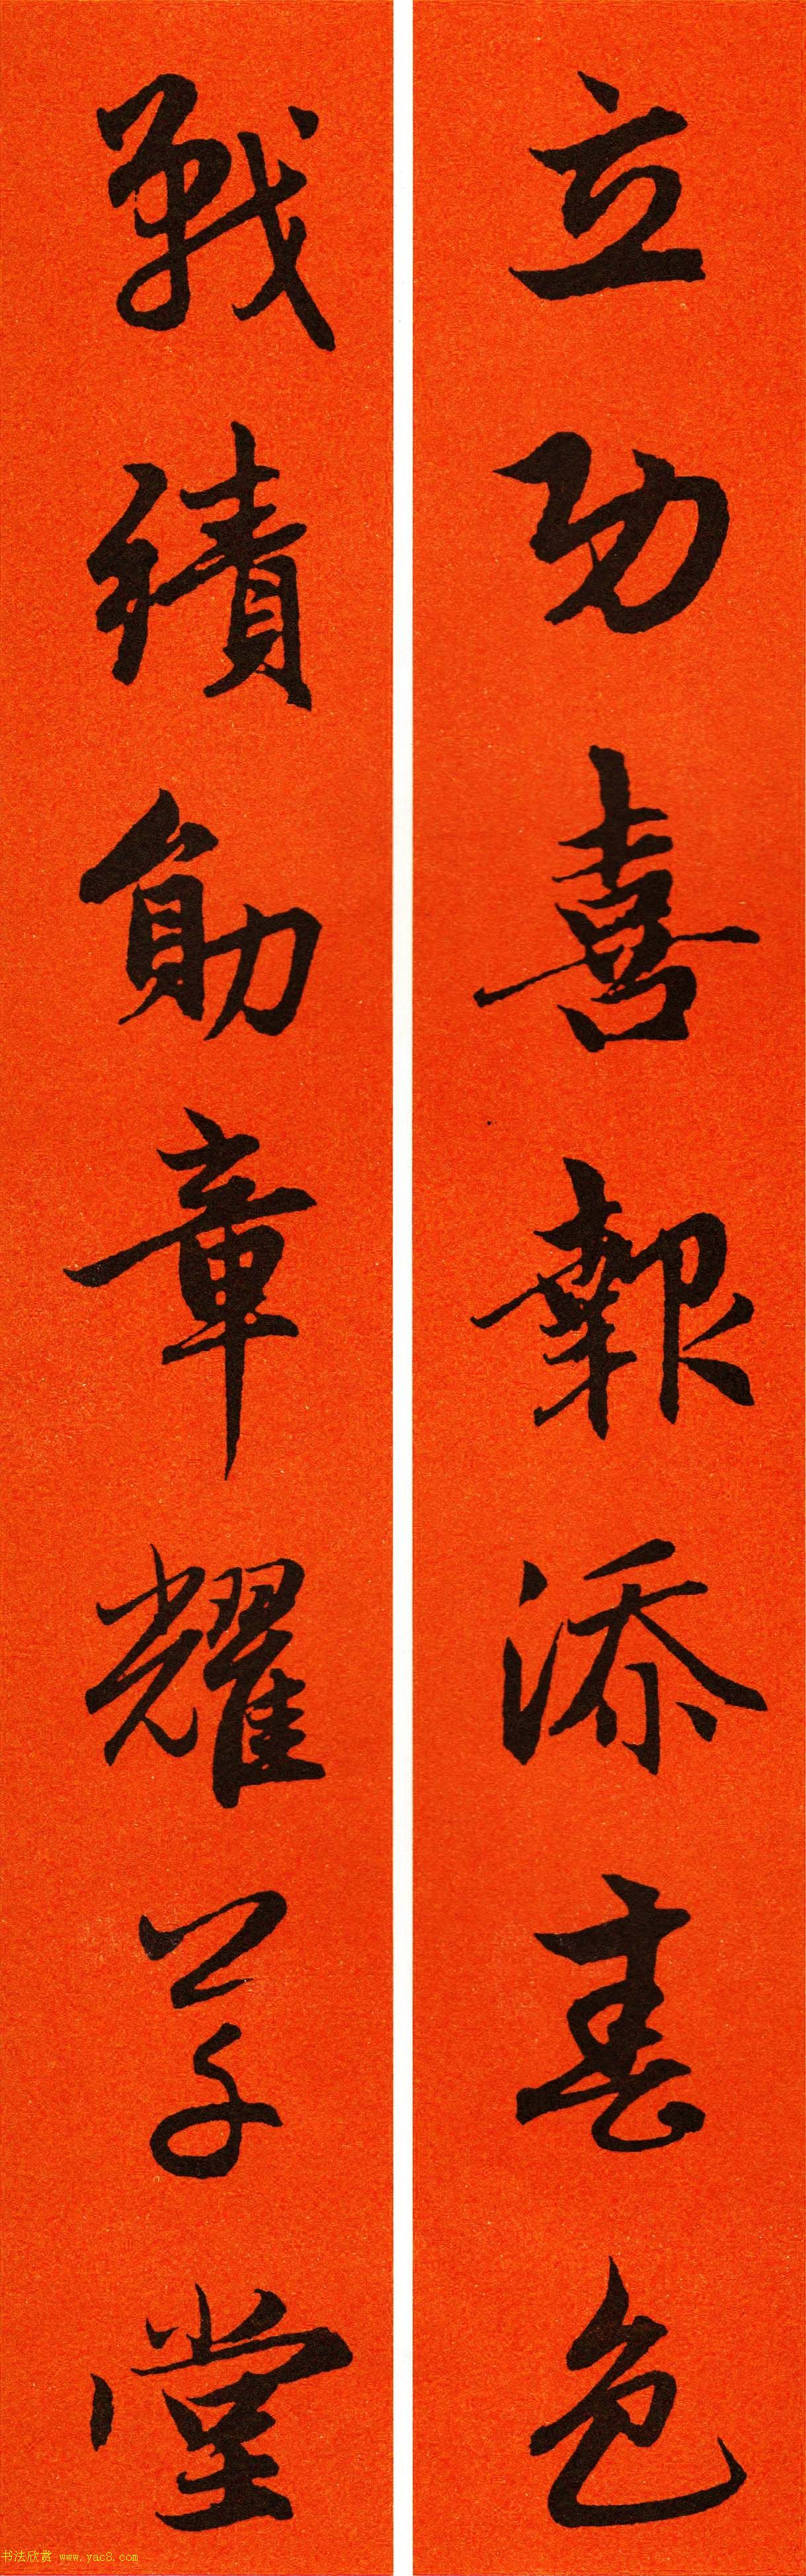 立功喜報添春色
戰績勛章耀草堂
书法欣赏 www.yac8.com